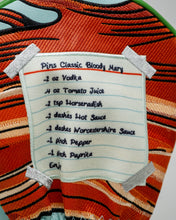 Pins Classic Bloody Mary
.2 oz Vodka
.4 oz Tomato Juice
.1 tsp Horseradish
.2 dashes Hot Sauce
.2 dashes Worcestershire Sauce
.1 pinch Pepper
.1 pinch Paprika